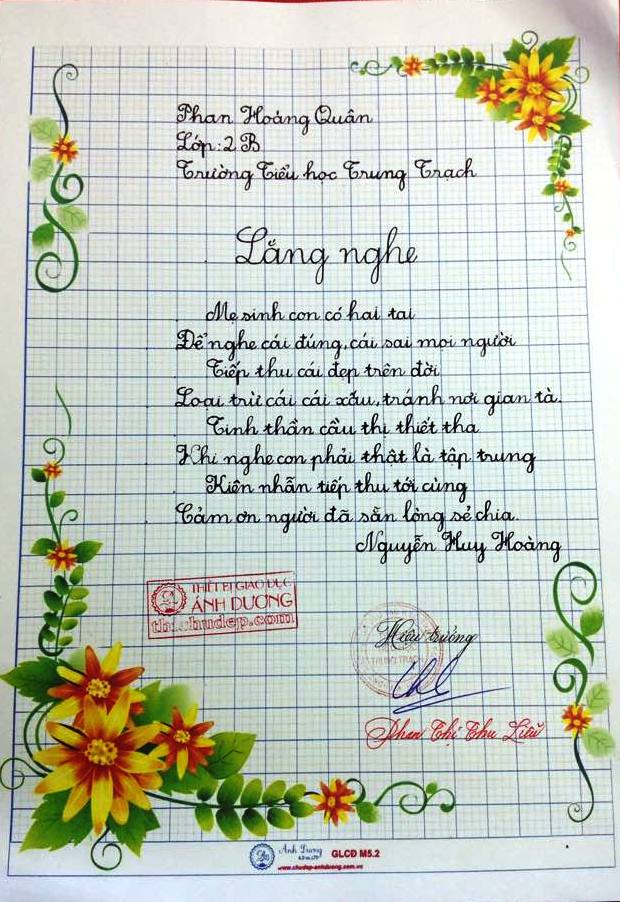 Phan Hoàng Quân
Lớp: 2 B
Trường Tiểu học Trung Trạch
Lắng nghe
Mẹ sinh con có hai tai
Để nghe cái đúng, cái sai mọi người
Tiếp thu cái đẹp trên đời
Loại trừ cái cái xấu, tránh nơi gian tà.
Tinh thần cầu thị thiết tha
Khi nghe con phải thật là tập trung
Kiên nhẫn tiếp thu tới cùng
Cảm ơn người đã sẵn lòng sẻ chia.
Nguyễn Huy Hoàng
THIẾT BỊ GIÁO DỤC
ÁNH DƯƠNG
thichudep.com
Hiệu trưởng
TRUNG TRẠCH
Phan Thị Thu Liễu
Ánh Dương
GLCĐ M5.2
www.chudep-anhduong.com.vn